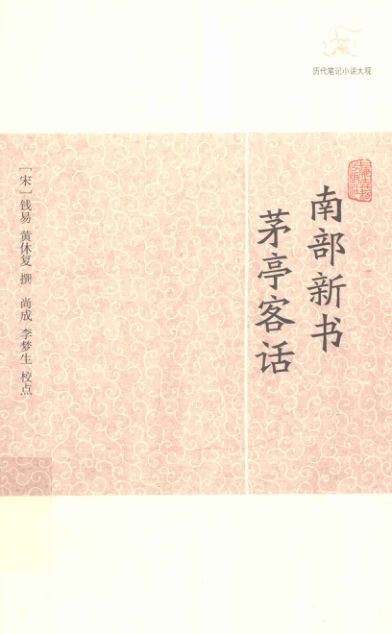 历代笔记小说大观
南部新书
茅亭客话
［宋］钱易 黄休复 撰 尚成 李梦生 校点